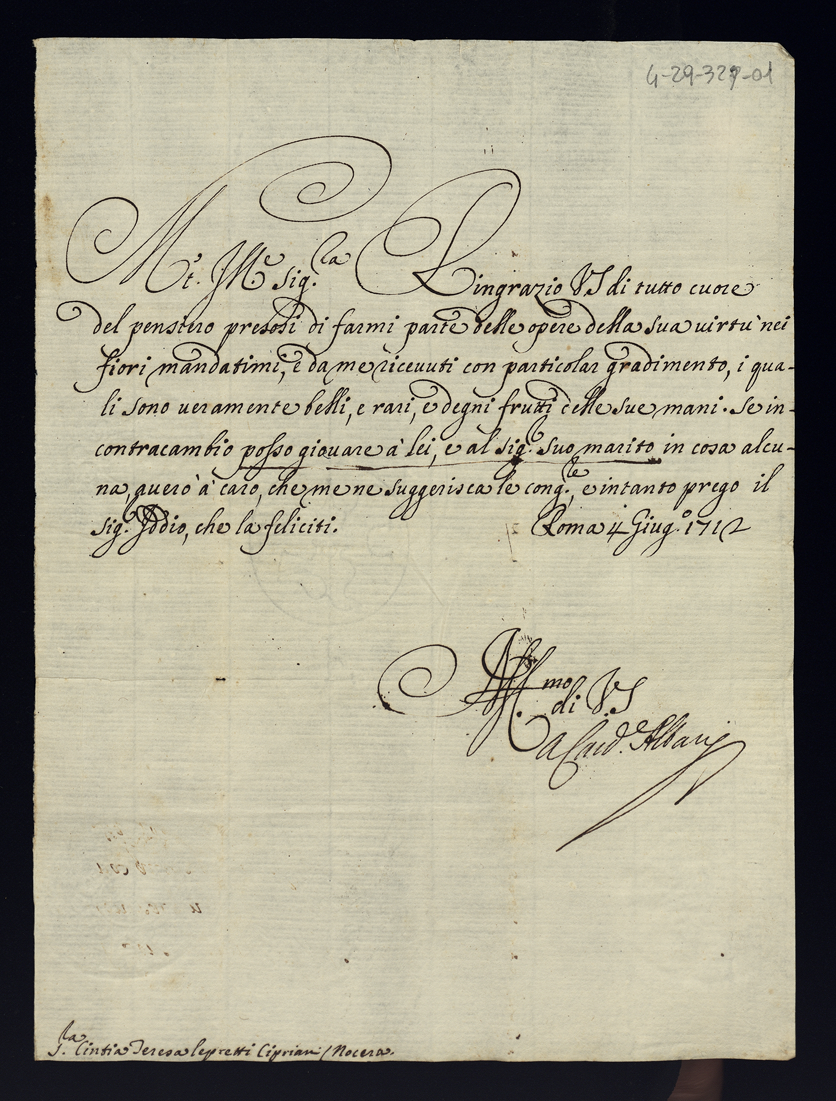 4-29-327-01
M.t Ill.e Sig.ra Ringrazio VS di tutto cuore
del pensiero presosi di farmi parte delle opere della sua virtù nei
fiori mandatimi, e da me ricevuti con particolar gradimento, i qua-
li sono veramente belli, e rari, e degni frutti delle sue mani. Se in
contracambio posso giovare à lei, e al sig.r suo marito in cosa alcu-
na, averò à caro, che me ne suggerisca le cong.e, e intanto prego il
sig.r Iddio, che la feliciti. Roma 4 Giug.o 1712
Aff.mo di V.S
A Card.e Albani
S.ra Cintia Teresa Lepretti Cipriani / Nocera.